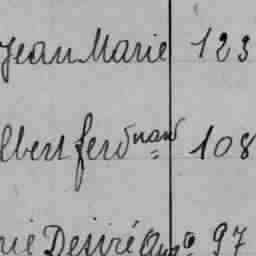 Jean Marie 123
lbert ferdnand 108
rie Desiré Aug 97